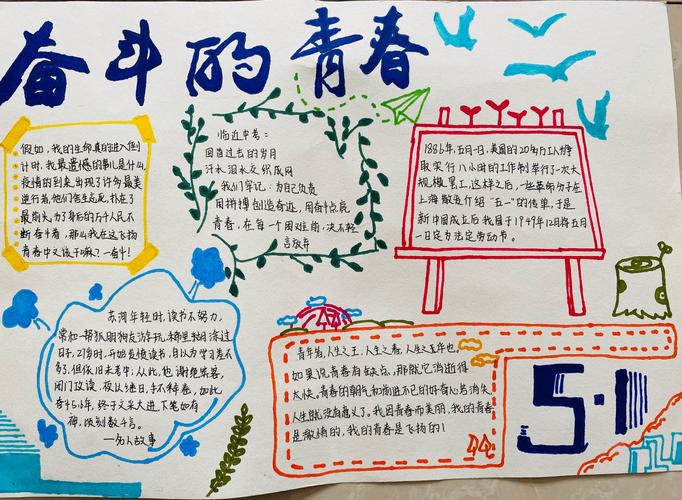 奋斗的青春
假如，我的生命真的进入倒
计时，我最遗憾的事儿是什么，
疫情的到来，出现了许多最美
逆行者，他们舍生忘死，扑在了
最前头，为了身后的万千人民不
断奋斗着，那么我在这飞扬
青春中又该干嘛？一奋斗！
临近中考：
回首过去的岁月
汗水泪水交织成网
我们牢记：为自己负责
用拼搏创造奇迹，用奋斗点亮
青春，在每一个困难前，决不轻
言放弃
1886年，五月一日，美国的20多万工人为争
取实行八小时的工作制举行了一次大
规模罢工，这样之后，一些革命分子在
上海散发介绍“五一”的传单，于是
新中国成立后我国于1949年12月将五月
一日定为法定劳动节。
苏洵年轻时，读书不努力，
常和一帮狐朋狗友游玩，糊里糊涂过
日子，27岁时，开始发愤读书，自以为学习差不
多了，但依旧未考中；从此，他谢绝宾客，
闭门攻读，夜以继日，手不释卷，如此
者45.6年，终于文采大进，下笔如有
神，顷刻数千言。
—名人故事
青年为，人生之王，人生之春，人生之华年也。
如果说青春有缺点，那就它消逝得
太快。青春的朝气和前进不已的好奇心若消失
人生就没有意义了。我因青春而美丽，我的青春
是激情的，我的青春是飞扬的！
5·1